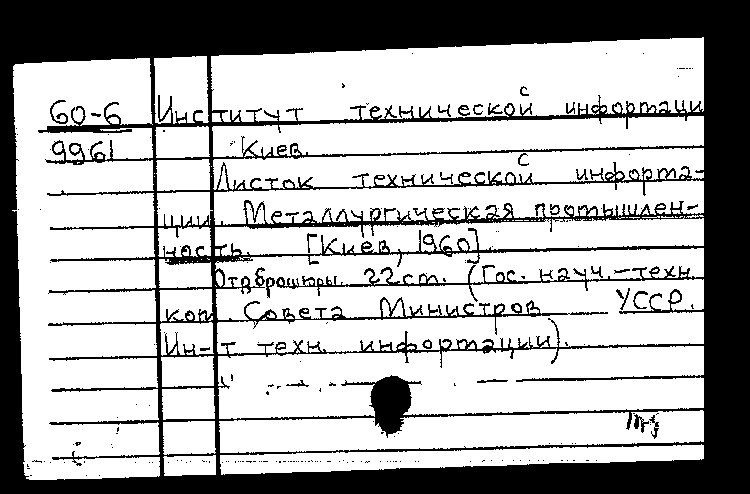 60-6 Институт технической информаци
9961 Киев.
Листок технической информа-
ции. Металлургическая промышлен-
ность. [Киев, 1960].
Отд. брошюры. 22 ст. (Гос. науч.-техн.
ком. Совета Министров УССР.
Ин-т техн. информации).